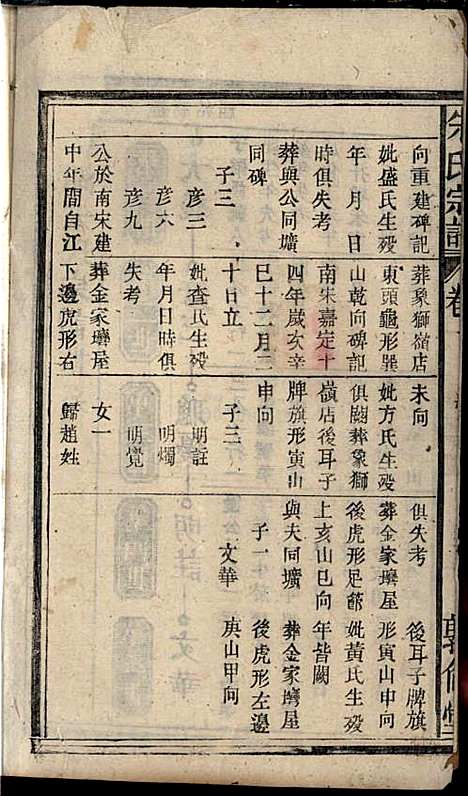 向重建碑記
妣盛氏生殁
年月日
時俱失考
葬與公同壙
同碑
子三
彥三
彥六
彥九
公於南宋建
中年間自江
葬象獅嶺店
東頭龜形巽
山乾向碑記
南宋嘉定十
四年歲次辛
巳十二月二
十日立
妣查氏生殁
年月日時俱
失考
葬金家塝屋
下邊虎形右
未向
妣方氏生殁
俱闕葬象獅
嶺店後耳子
牌旗形寅山
申向
子三
明註
明燭
明覺
女一
歸趙姓
俱失考
葬金家塝屋
後虎形足節
上亥山巳向
與夫同壙
子一
文華
後耳子牌旗
形寅山申向
妣黃氏生殁
年皆闕
葬金家塝屋
後虎形左邊
庚山甲向
氏宗譜 卷